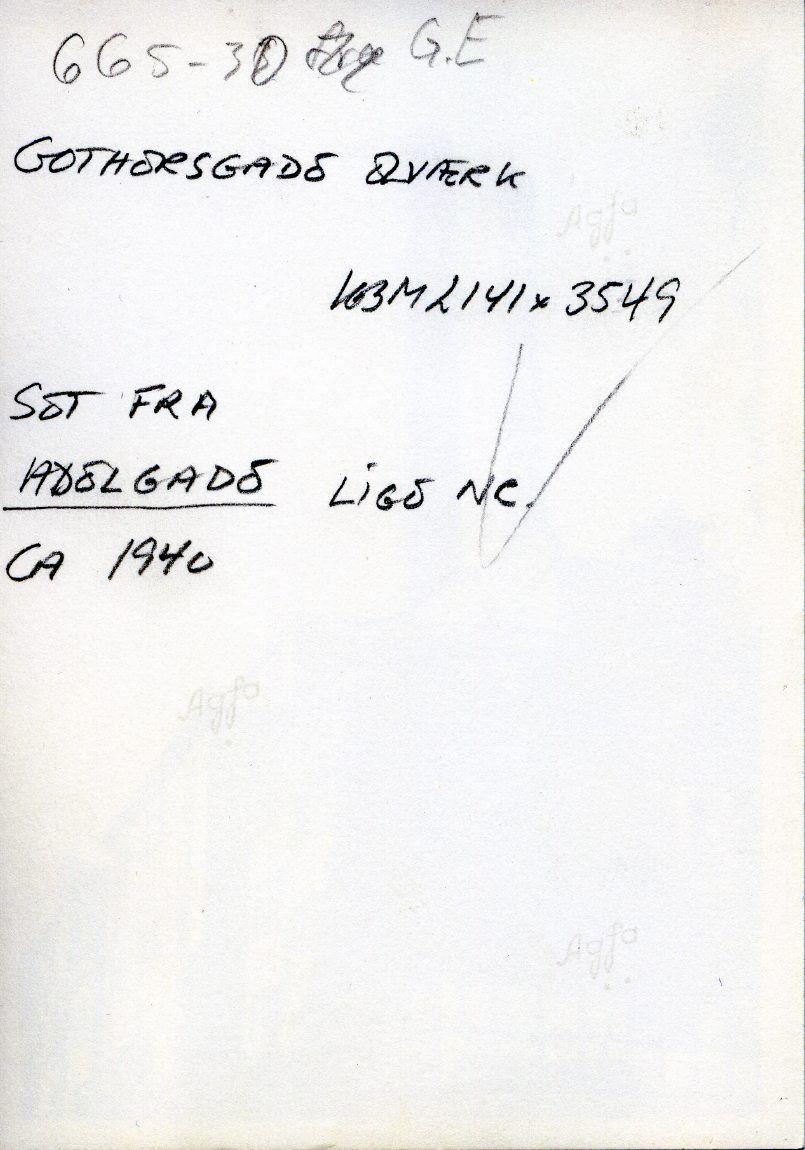 665-30 G.E
GOTHERSGADE ELVÆRK
KBM 2141x3549
SET FRA
ADELGADE LIGE NC.
CA 1940
Agfa
Agfa
Agfa